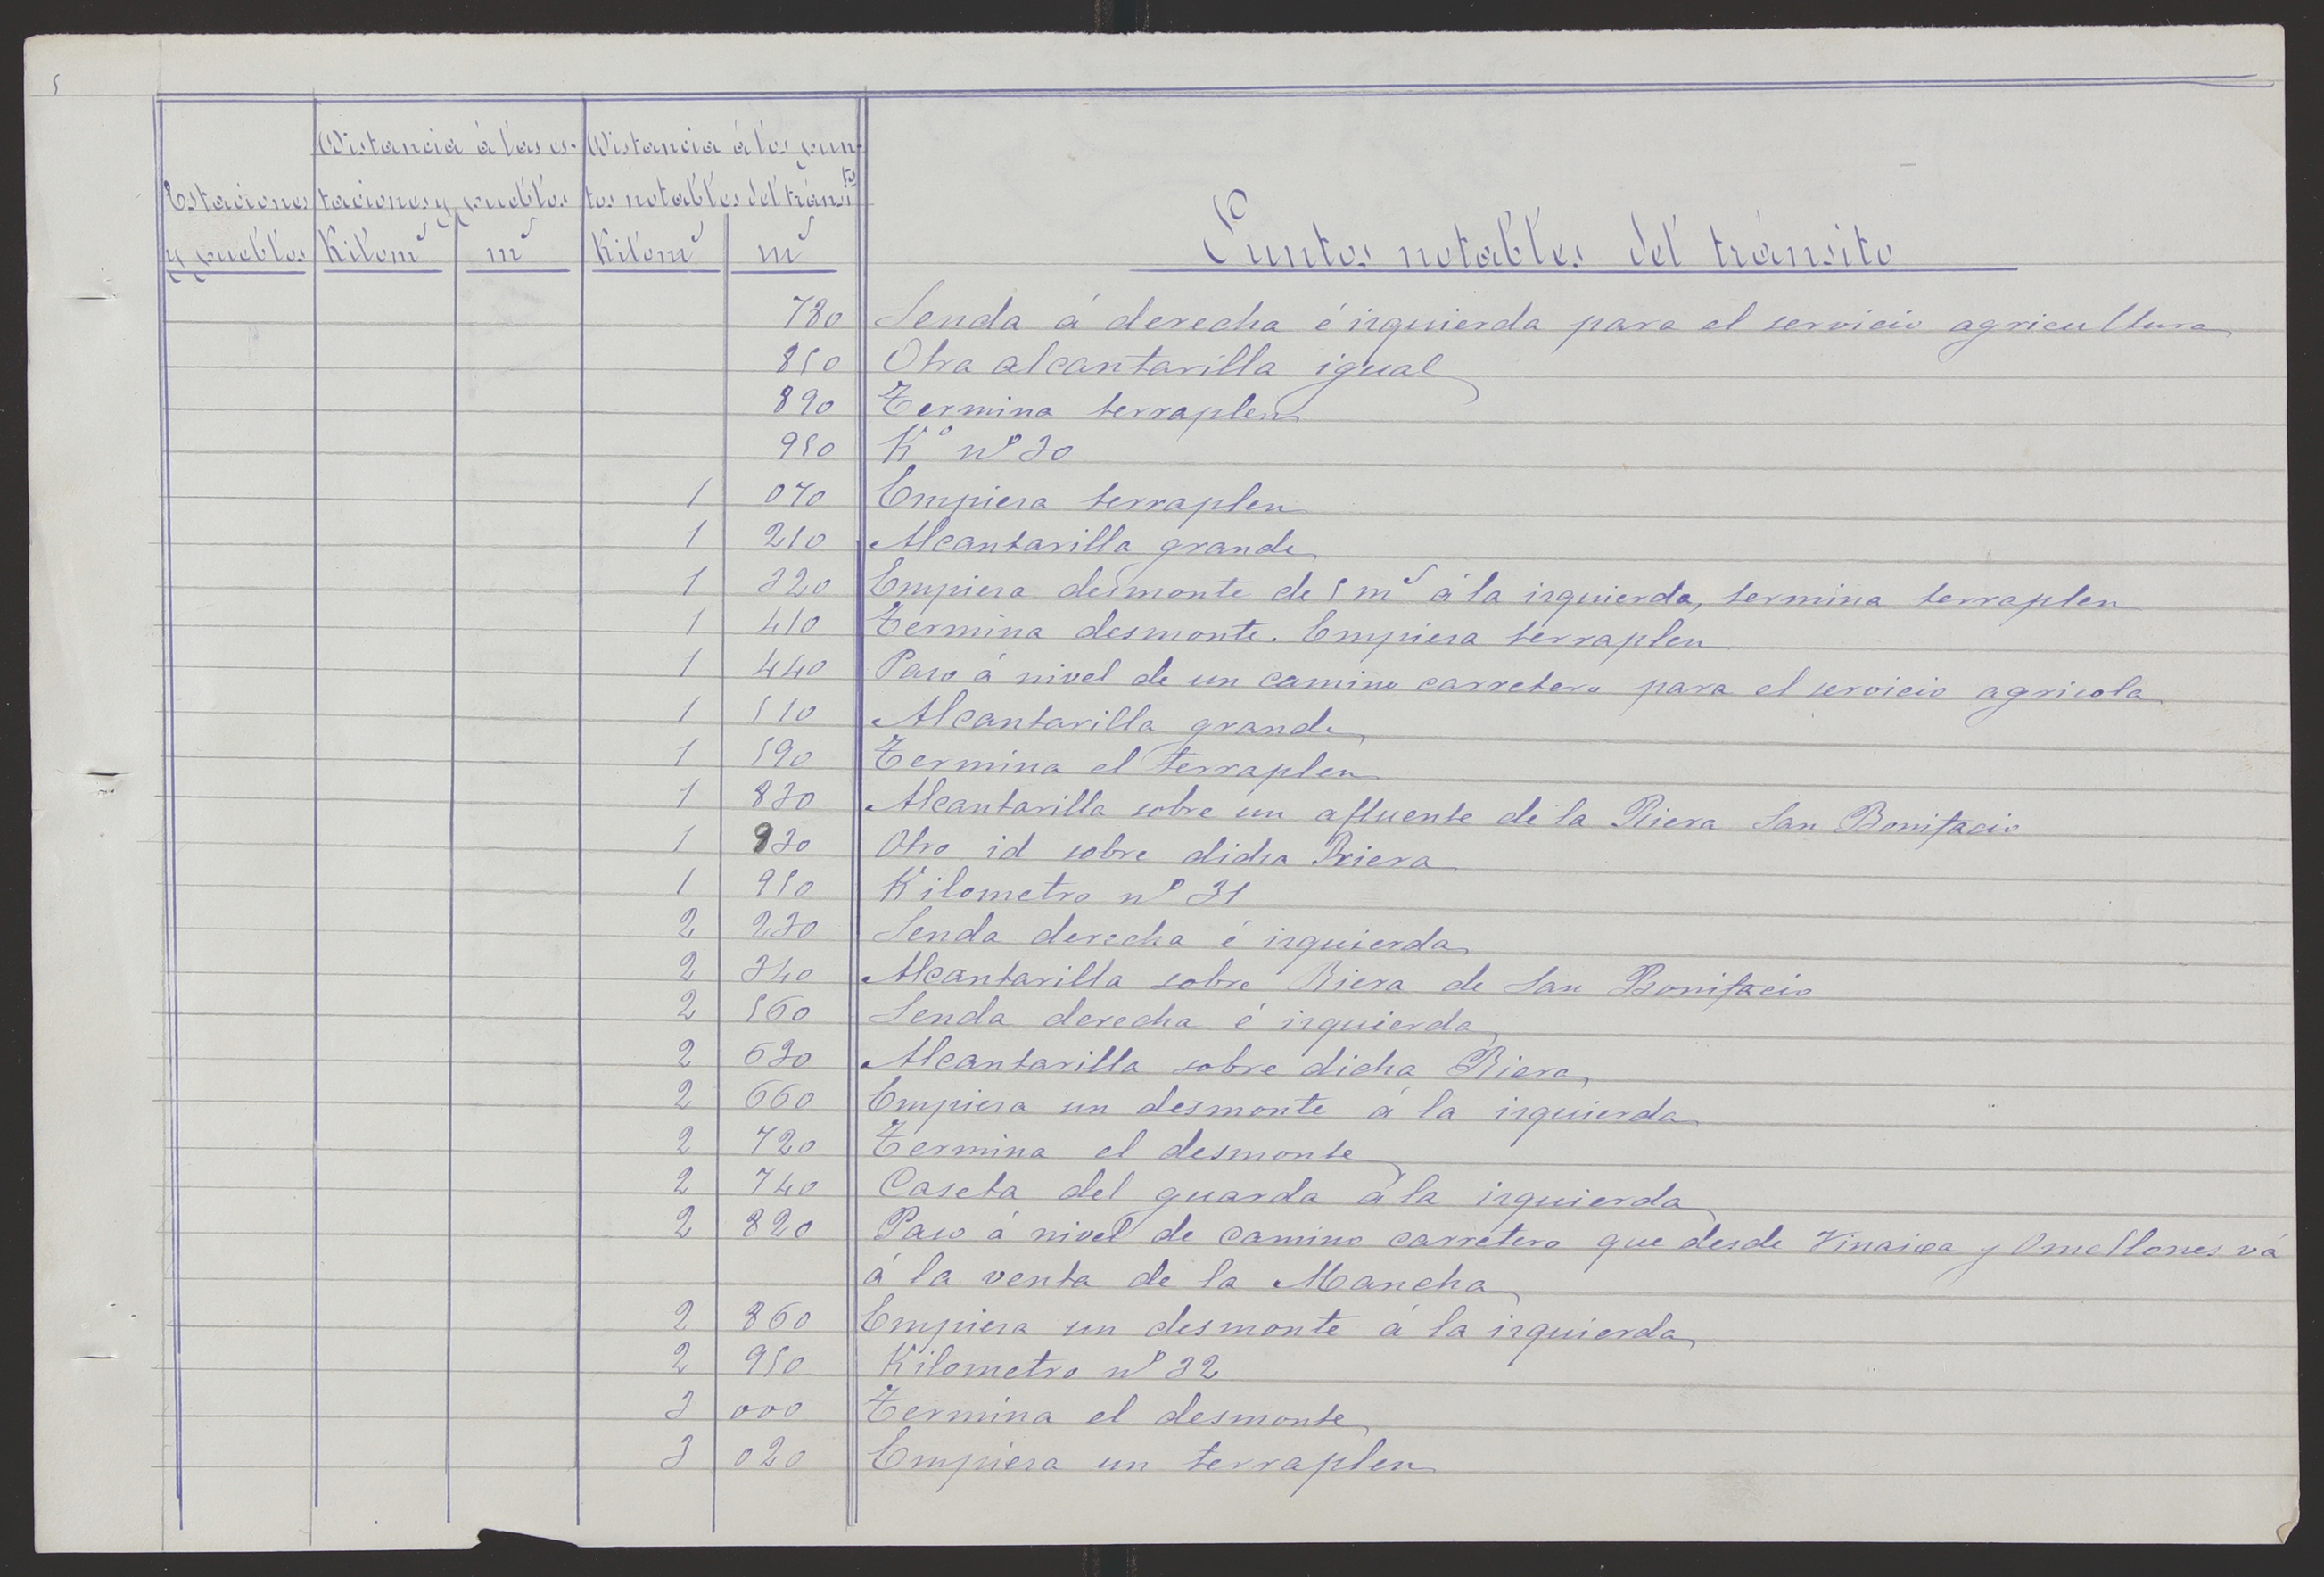 5
Distancia á las es- Distancia á los pun-
Estaciones taciones y pueblos tos notables del tránsito
y pueblos Kilomˢ mˢ Kilomˢ mˢ Puntos notables del tránsito
780 Senda á derecha é izquierda para el servicio agricultura
850 Otra alcantarilla igual
890 Termina terraplen
950 Kº nº 30
1 070 Empieza terraplen
1 210 Alcantarilla grande
1 320 Empieza desmonte de 5 mˢ á la izquierda, termina terraplen
1 410 Termina desmonte. Empieza terraplen
1 440 Paso á nivel de un camino carretero para el servicio agricola
1 510 Alcantarilla grande
1 590 Termina el terraplen
1 830 Alcantarilla sobre un afluente de la Riera San Bonifacio
1 930 Otro id sobre dicha Riera
1 950 Kilometro nº 31
2 230 Senda derecha é izquierda
2 340 Alcantarilla sobre Riera de San Bonifacio
2 560 Senda derecha é izquierda
2 630 Alcantarilla sobre dicha Riera
2 660 Empieza un desmonte á la izquierda
2 720 Termina el desmonte
2 740 Caseta del guarda á la izquierda
2 820 Paso á nivel de camino carretero que desde Vinaixa y Omellones vá
á la venta de la Mancha
2 860 Empieza un desmonte á la izquierda
2 950 Kilometro nº 32
3 000 Termina el desmonte
3 020 Empieza un terraplen